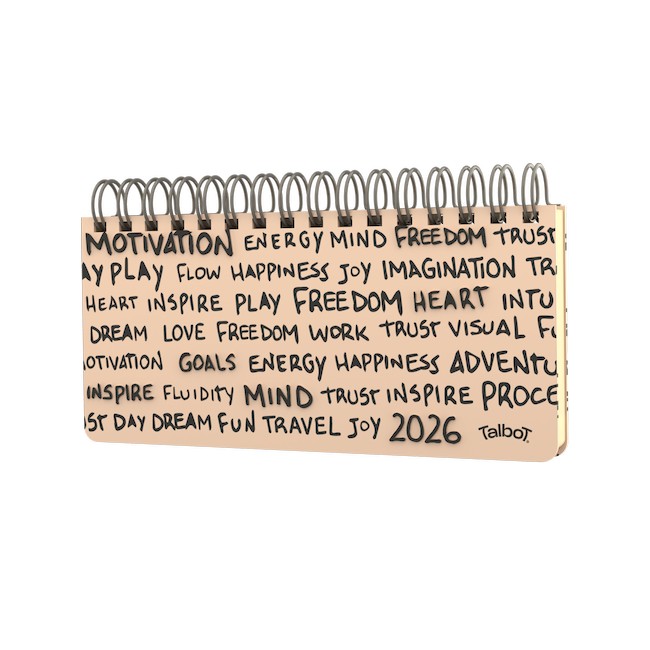 MOTIVATION ENERGY MIND FREEDOM TRUST
AY PLAY FLOW HAPPINESS JOY IMAGINATION TR
HEART INSPIRE PLAY FREEDOM HEART INTU
DREAM LOVE FREEDOM WORK TRUST VISUAL FU
OTIVATION GOALS ENERGY HAPPINESS ADVENTU
INSPIRE FLUIDITY MIND TRUST INSPIRE PROCE
ST DAY DREAM FUN TRAVEL JOY 2026 Talbot